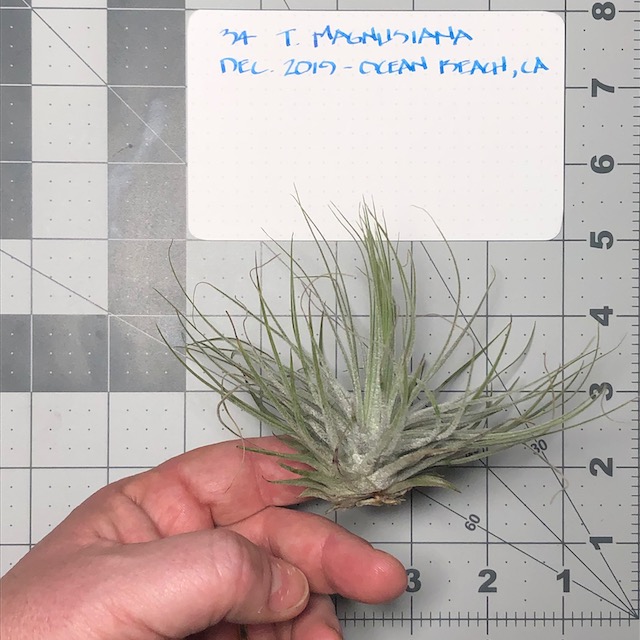 34 T. MAGNUSIANA
DEC. 2019 - OCEAN BEACH, CA
8
7
6
5
4
3
2
1
30
60
3 2 1